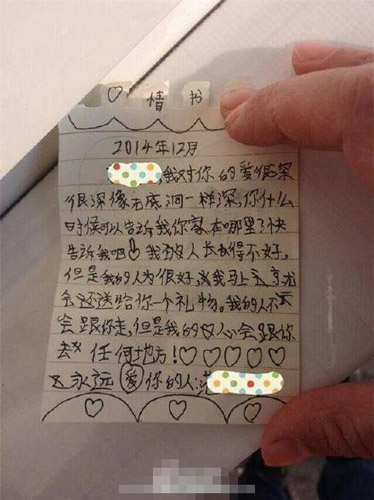 ♡ 情书
2014年12月
,我对你的爱很深
很深像无底洞一样深,你什么
时候可以告诉我你家在哪里?快
告诉我吧!我的人长得不好,
但是我的人为很好,我马上
会还送给你一个礼物。我的人不
会跟你走,但是我的心会跟你
去任何地方!♡♡♡♡♡
永远爱你的人: